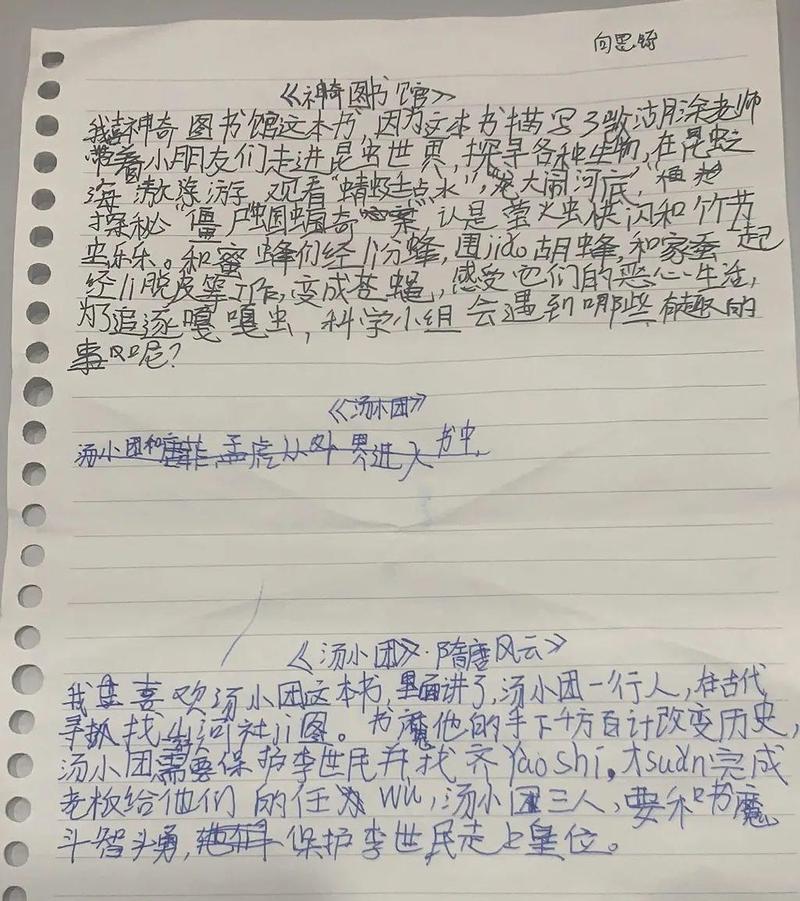 向思
《神奇图书馆》
我喜神奇图书馆这本书,因为这本书描写了歌洁月涂老师
带着小朋友们走进昆虫世界,探寻各种生物,在昆虫之
海 遨 游 观看"蜻蜓点水","大闹河底",
探秘"僵尸蝈蝈奇案",认是萤火虫快闪和竹节
虫乐乐。和蜜蜂们经li分蜂,围jiao胡蜂,和家蚕一起
经li脱皮等工作,变成苍蝇,感受它们的恶心生活,
为了追逐嘎嘎虫,科学小组会遇到哪些有趣的
事呢?
《汤小团》
汤小团和唐菲,孟虎从外界进入书中,
《汤小团》·隋唐风云》
我喜欢汤小团这本书,里面讲了,汤小团一行人,在古代
寻找山河社ji图。书魔他的手下千方百计改变历史,
汤小团需要保护李世民并找齐Yao shi,才suan完成
老板给他们的任wu,汤小团三人,要和书魔
斗智斗勇,保护李世民走上皇位。